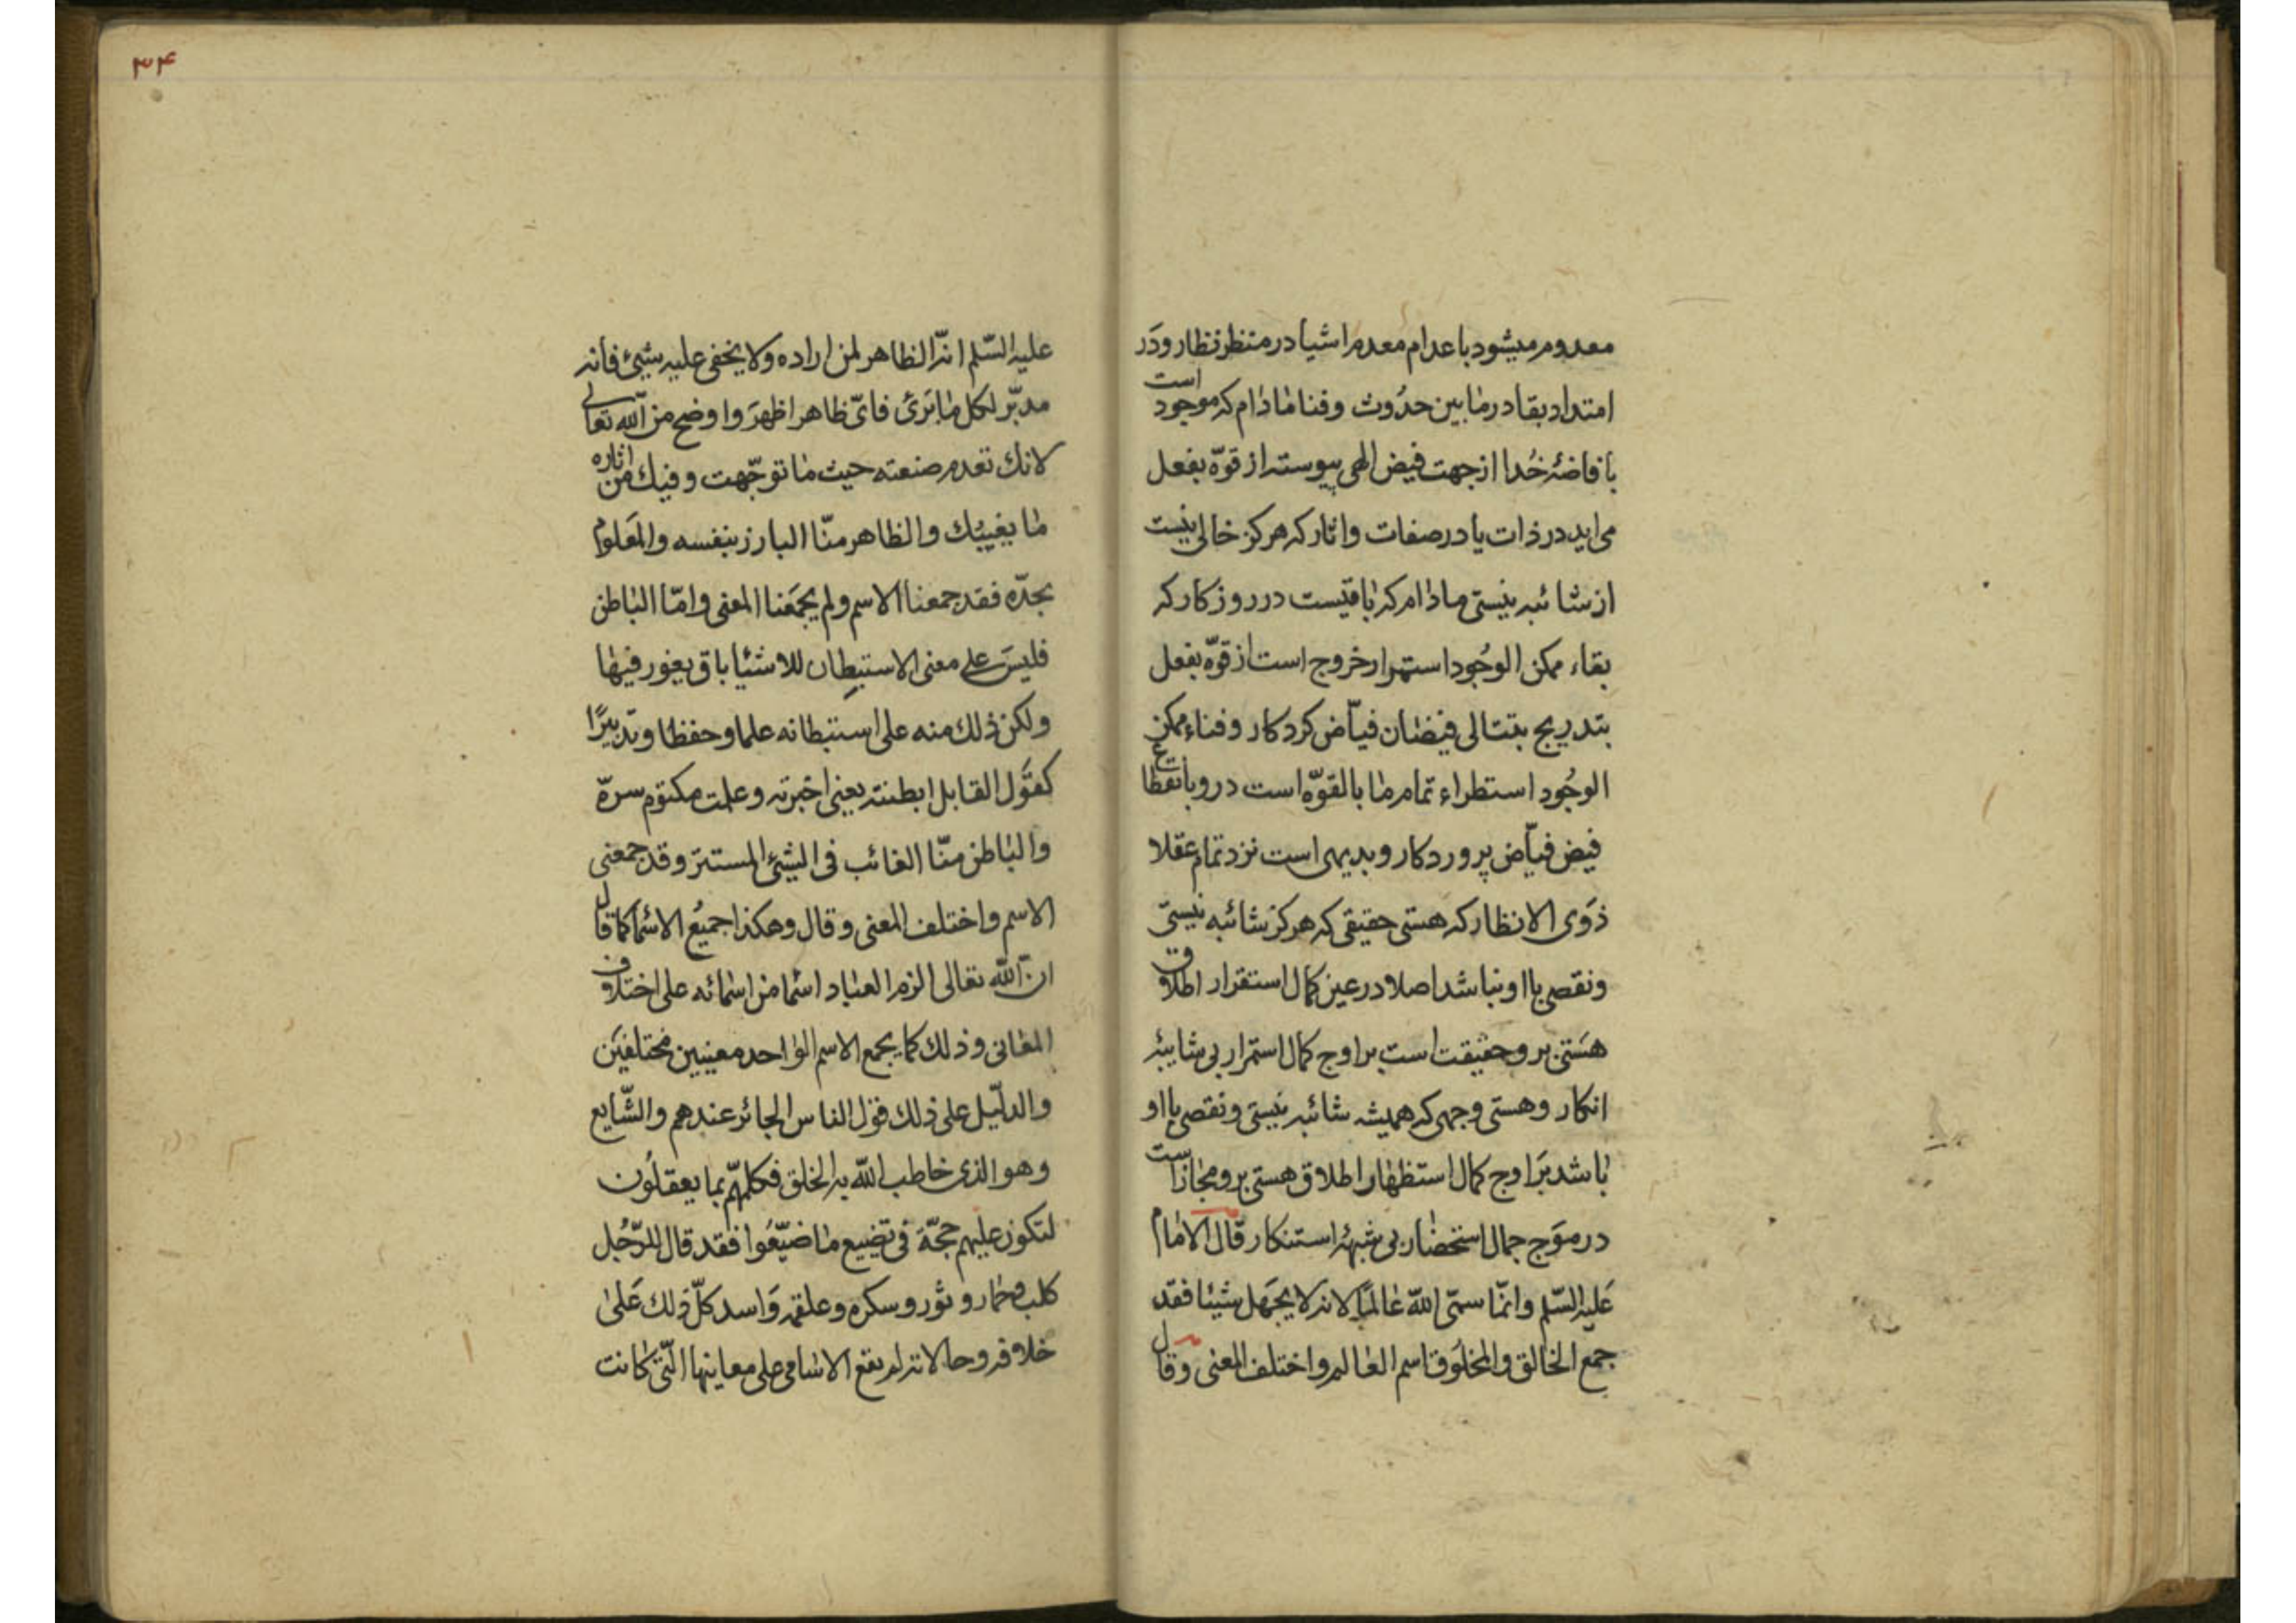 معدوم میشود باعدام معدم اشیا در منظر نظار و در
امتداد بقا در مابین حدوث و فنا مادام که موجود است
بافاضهٔ خدا از جهت فیض الهی پیوسته از قوّه بفعل
می اید در ذات یا در صفات و اثار که هرکز خالی نیست
از شائبه نیستی مادام که باقیست در روزکار که
بقاء ممکن الوجود استمرار خروج است از قوّه بفعل
بتدریج بتتالی فیضان فیّاض کردکار و فناء ممکن
الوجود استطراء تمام ما بالقوّه است در و بانقطاع
فیض فیّاض پروردکار و بدیهی است نزد تمام عقلا
ذوی الانظار که هستی حقیقی که هرکز شائبه نیستی
و نقصی با او نباشد اصلا در عین کمال استقرار اطلاق
هستی بر و حقیقت است بر اوج کمال استمرار بی شایبهٔ
انکار و هستی وجهی که همیشه شائبه نیستی و نقصی با او
باشد بر اوج کمال استظهار اطلاق هستی بر و مجاز است
در موج جمال استحضار بی شبههٔ استنکار قال الامام
علیه السّلم وانّما سمّی اللّه عالمًا لانه لا یجهل شیئا فقد
جمع الخالق والمخلوق اسم العالم واختلف المعنی وقال
۳۴
علیه السّلم انّه الظاهر لمن اراده ولا یخفی علیه شیئ فانه
مدبّر لکل ما یری فایّ ظاهر اظهر واوضح من اللّه تعالی
لانك تعدم صنعته حیث ما توجّهت وفیك من اثاره
ما یغییك والظاهر منّا البارز بنفسه والمعلوم
بحدّه فقد جمعنا الاسم ولم یجمعنا المعنی وامّا الباطن
فلیس علی معنی الاستبطان للاشیا باق یغور فیها
ولکن ذلك منه علی استبطانه علما وحفظا وتدبیرًا
کقول القایل ابطنته یعنی اخبرته وعلمت مکتوم سرّه
والباطن منّا الغائب فی الشیئ المستتر وقد جمعنی
الاسم واختلف المعنی وقال وهکذا جمیع الاسما کما قال
ان اللّه تعالی الزم العباد اسما من اسمائه علی اختلاف
المعانی وذلك کما یجمع الاسم الواحد معنیین مختلفین
والدلیل علی ذلك قول الناس الجائز عندهم والشّایع
وهو الذی خاطب اللّه به الخلق فکلّمهم بما یعقلون
لتکون علیهم حجّة فی تضییع ما ضیّعوا فقد قال للرّجل
کلب وحمار وثور وسکره وعلقمه واسد کلّ ذلك علی
خلافه وحالاته لم یقع الاسامی علی معاینها الّتی کانت